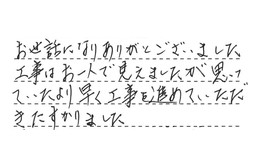 お世話になりありがとございました
工事はお一人で見えましたが思って
ていたより早く工事を進めていただ
きたすかりました